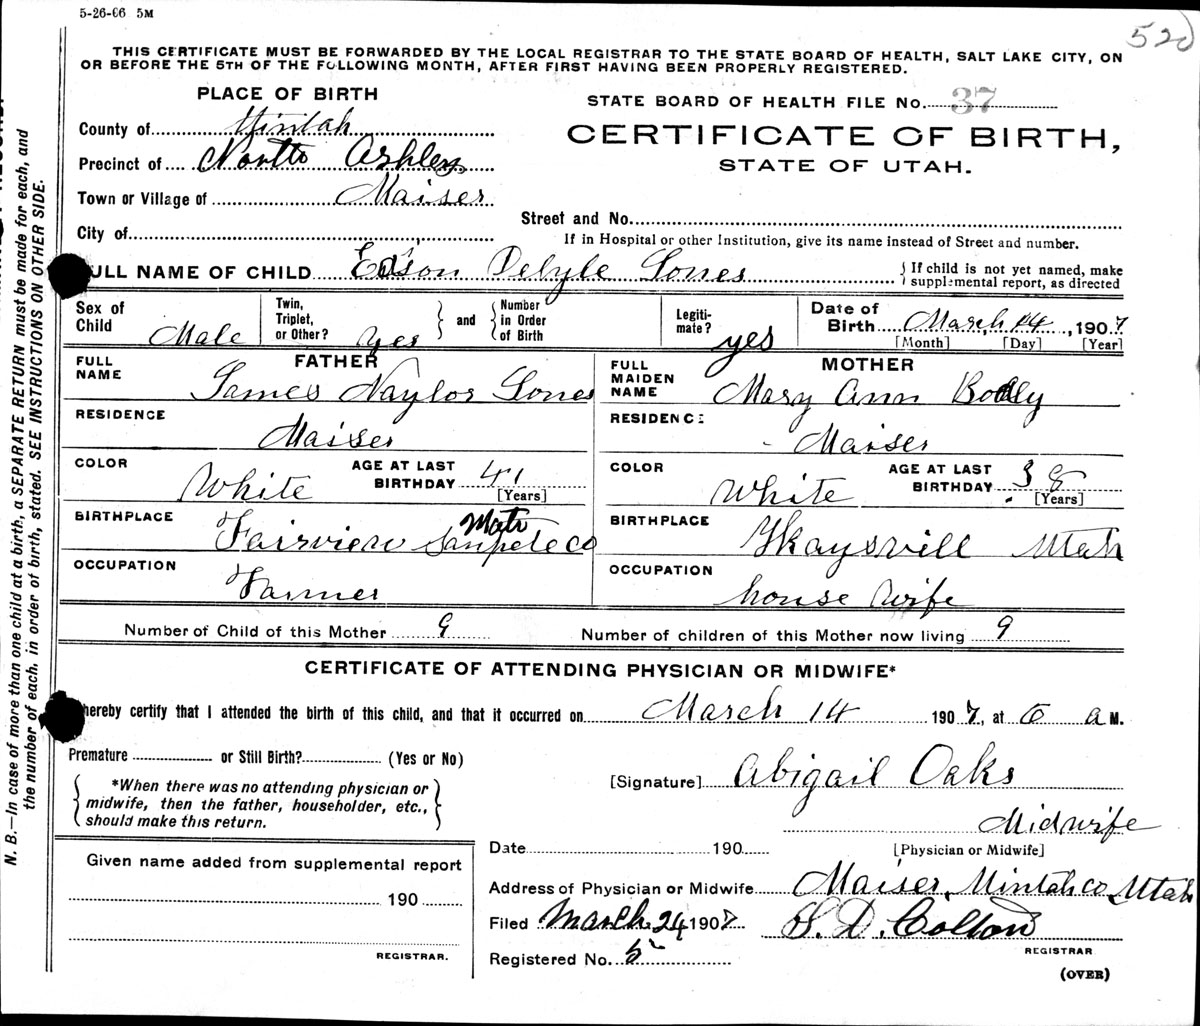 5-26-06 5M
520
THIS CERTIFICATE MUST BE FORWARDED BY THE LOCAL REGISTRAR TO THE STATE BOARD OF HEALTH, SALT LAKE CITY, ON
OR BEFORE THE 5TH OF THE FOLLOWING MONTH, AFTER FIRST HAVING BEEN PROPERLY REGISTERED.
N. B.—In case of more than one child at a birth, a SEPARATE RETURN must be made for each, and
the number of each, in order of birth, stated. SEE INSTRUCTIONS ON OTHER SIDE.
PLACE OF BIRTH
County of Uintah
Precinct of North Ashley
Town or Village of Maiser
City of
STATE BOARD OF HEALTH FILE No. 37
CERTIFICATE OF BIRTH,
STATE OF UTAH.
Street and No.
If in Hospital or other Institution, give its name instead of Street and number.
FULL NAME OF CHILD Edson Delyle Jones
If child is not yet named, make
supplemental report, as directed
Sex of Child Male
Twin, Triplet, or Other? Yes
and
Number in Order of Birth
Legitimate? yes
Date of Birth March 14, 1907
[Month] [Day] [Year]
FATHER
FULL NAME James Naylor Jones
RESIDENCE Maiser
COLOR White
AGE AT LAST BIRTHDAY 41
[Years]
BIRTHPLACE Fairview Sanpete co
OCCUPATION Farmer
MOTHER
FULL MAIDEN NAME Mary Ann Bodly
RESIDENCE Maiser
COLOR White
AGE AT LAST BIRTHDAY 38
[Years]
BIRTHPLACE Kaysvill Utah
OCCUPATION house wife
Number of Child of this Mother 9
Number of children of this Mother now living 9
CERTIFICATE OF ATTENDING PHYSICIAN OR MIDWIFE*
hereby certify that I attended the birth of this child, and that it occurred on March 14 1907, at 6 a M.
Premature or Still Birth? (Yes or No)
*When there was no attending physician or
midwife, then the father, householder, etc.,
should make this return.
[Signature] Abigail Oaks
Midwife
[Physician or Midwife]
Date 190
Given name added from supplemental report
190
REGISTRAR.
Address of Physician or Midwife Maiser, Uintah co Utah
Filed March 24 1907 S. D. Colton
REGISTRAR
Registered No. 5
(OVER)